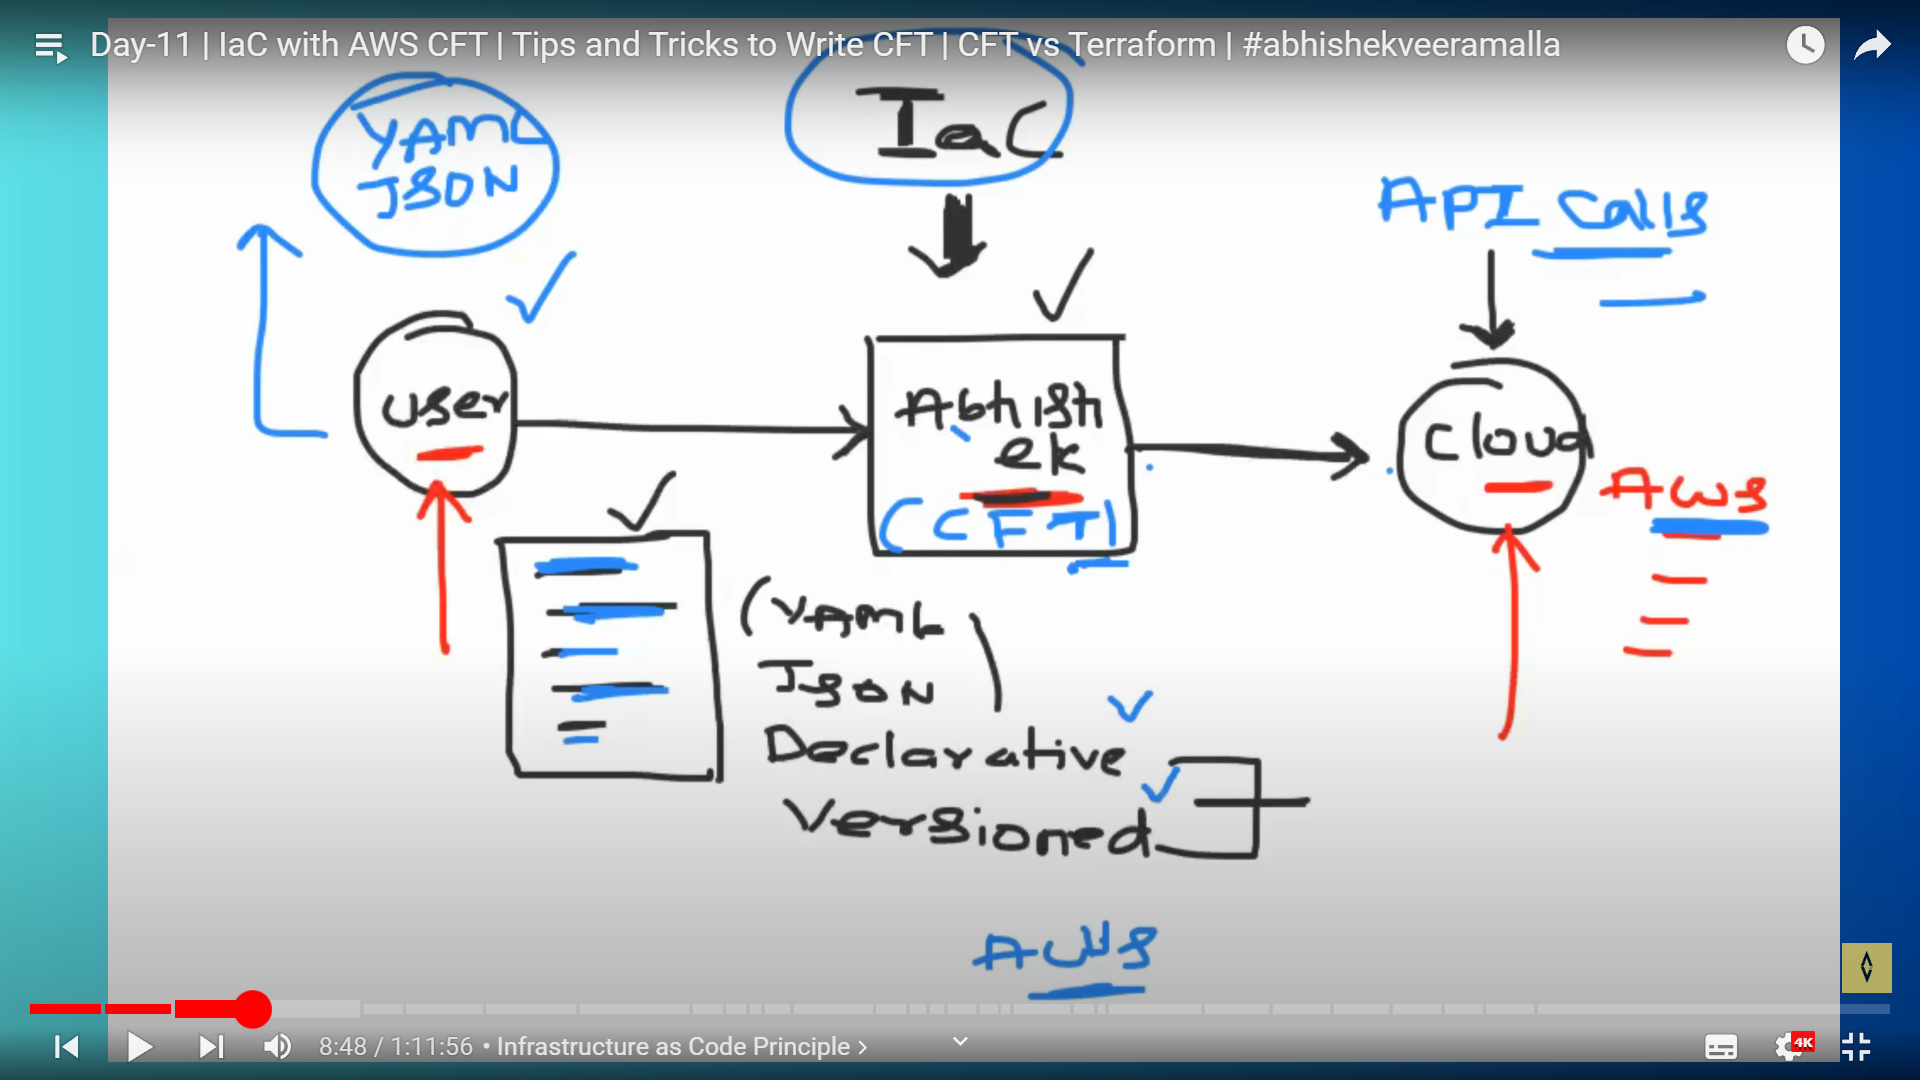 Day-11 | IaC with AWS CFT | Tips and Tricks to Write CFT | CFT vs Terraform | #abhishekveeramalla
IaC
YAML
JSON
API Calls
user
Abhish
ek
(CFT)
Cloud
AWS
(YAML
JSON)
Declarative
Versioned
AWS
8:48 / 1:11:56 • Infrastructure as Code Principle
4K